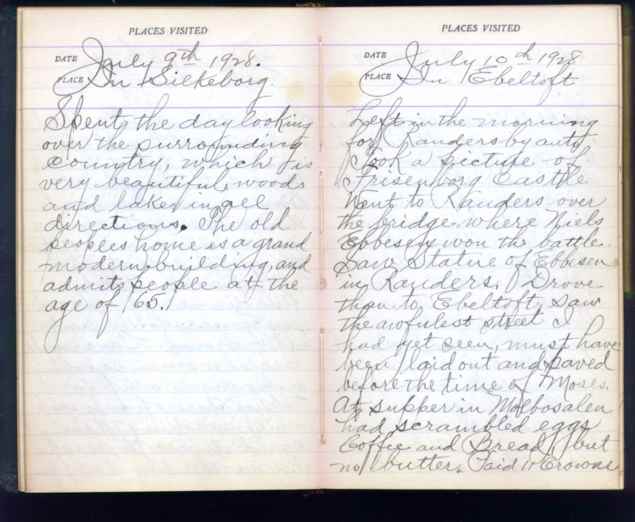 PLACES VISITED
DATE July 9th, 1928.
PLACE In Silkeborg
Spent the day looking
over the surrounding
country, which is
very beautiful, woods
and lakes in all
directions. The old
peoples home is a grand
modern building, and
admits people at the
age of 65.
PLACES VISITED
DATE July 10th 1928
PLACE In Ebeltoft
Left in the morning
for Randers by auto
Took a picture of
Frisenborg Castle
Went to Randers over
the bridge where Niels
Ebbesen won the battle.
Saw Statue of Ebbesen
in Randers. Drove
than to Ebeltoft, saw
the awfulest street I
had yet seen, must have
been laid out and paved
before the time of Moses.
At supper in Molbosalen
had scrambled eggs
Coffee and Bread, but
no butter. Paid Crowns